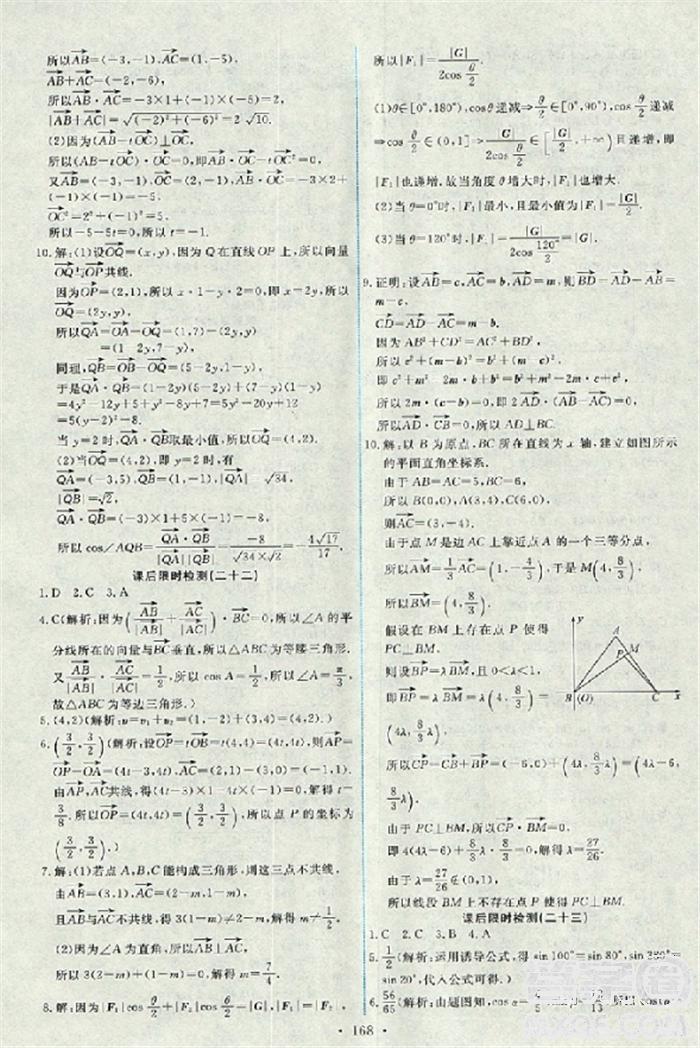 所以AB=(-3,-1),AC=(1,-5).
AB+AC=(-2,-6),
所以AB·AC=-3×1+(-1)×(-5)=2,
|AB+AC|=√(-2)²+(-6)²=2√10.
(2)因为(AB-tOC)⊥OC,
所以(AB-tOC)·OC=0,即AB·OC-tOC²=0,
又AB=(-3,-1),OC=(2,-1),AB·OC=-3×2+
(-1)×(-1)=-5,
OC²=2²+(-1)²=5,
所以-5-5t=0,所以t=-1.
10.解:(1)设OQ=(x,y),因为Q在直线OP上,所以向量
OQ与OP共线.
因为OP=(2,1),所以x·1-y·2=0,即x=2y,所以
OQ=(2y,y).
所以QA=OA-OQ=(1,7)-(2y,y)
=(1-2y,7-y),
同理,QB=OB-OQ=(5-2y,1-y).
于是QA·QB=(1-2y)(5-2y)+(7-y)(1-y)
=4y²-12y+5+y²-8y+7=5y²-20y+12
=5(y-2)²-8.
当y=2时,QA·QB取最小值,所以OQ=(4,2).
(2)当OQ=(4,2),即y=2时,有
QA=(-3,5),QB=(1,-1),|QA|=√34,
|QB|=√2,
QA·QB=(-3)×1+5×(-1)=-8,
所以cos∠AQB=QA·QB/|QA||QB|=-8/√34×√2=-4√17/17.
课后限时检测(二十二)
1.D 2.C 3.A
4.C(解析:因为(AB/|AB|+AC/|AC|)·BC=0,所以∠A的平
分线所在的向量与BC垂直,所以△ABC为等腰三角形.
又AB/|AB|·AC/|AC|=1/2,所以cos A=1/2,所以∠A=π/3,
故△ABC为等边三角形.)
5.(4,2)(解析:v=v₁+v₂=(1,-2)+(3,4)=(4,2).)
6.(3/2,3/2)(解析,设OP=tOB=t(4,4)=(4t,4t),则AP=
OP-OA=(4t-3,4t),AC=(2,1)-(3,0)=(-1,1).
由AP,AC共线,得(4t-3)×1-4t×(-1)=0,解得t=
3/8.所以OP=(4t,4t)=(3/2,3/2),所以点P的坐标为
(3/2,3/2).)
7.解:(1)若点A,B,C能构成三角形,则这三点不共线.
由AB=(3,1),AC=(2-m,1-m),
且AB与AC不共线,得3(1-m)≠2-m,解得m≠1/2.
(2)因为∠A为直角,所以AB⊥AC,
所以3(2-m)+(1-m)=0,解得m=7/4.
8.解:因为|F₁|cosθ/2+|F₂|cosθ/2=|G|,|F₁|=|F₂|,
所以|F₁|=|G|/2cosθ/2.
(1)θ∈[0°,180°),cosθ递减⇒θ/2∈[0°,90°),cosθ/2递减
⇒cosθ/2∈(0,1]⇒|G|/2cosθ/2∈[|G|/2,+∞)且递增,即
|F₁|也递增,故当角度θ增大时,|F₁|也增大.
(2)当θ=0°时,|F₁|最小,且最小值为|F₁|=|G|/2.
(3)当θ=120°时,|F₁|=|G|/2cos120°/2=|G|.
9.证明:设AB=c,AC=b,AD=m,则BD=AD-AB=
m-c,
CD=AD-AC=m-b.
因为AB²+CD²=AC²+BD²,
所以c²+(m-b)²=b²+(m-c)².
即c²+m²-2m·b+b²=b²+m²-2m·c+c²,
所以2m·(c-b)=0,即2AD·(AB-AC)=0,
所以AD·CB=0,所以AD⊥BC.
10.解:以B为原点,BC所在直线为x轴,建立如图所示
的平面直角坐标系.
由于AB=AC=5,BC=6,
所以B(0,0),A(3,4),C(6,0),
则AC=(3,-4).
由于点M是边AC上靠近点A的一个三等分点,
所以AM=1/3AC=(1,-4/3),于是M(4,8/3),
所以BM=(4,8/3).
假设在BM上存在点P使得
PC⊥BM,
则设BP=λBM,且0<λ<1,
即BP=λBM=λ(4,8/3)=
(4λ,8/3λ),
y
A
P
M
B (O)
C
x
所以CP=CB+BP=(-6,0)+(4λ,8/3λ)=(4λ-6,
8/3λ).
由于PC⊥BM,所以CP·BM=0.
即4(4λ-6)+8/3×8/3λ=0,解得λ=27/26.
由于λ=27/26∉(0,1),
所以线段BM上不存在点P使得PC⊥BM.
课后限时检测(二十三)
1.C 2.C 3.B 4.A
5.1/2(解析:运用诱导公式,得sin100°=sin80°,sin380°=
sin20°,代入公式可得.)
6.56/65(解析:由题图知,cosα=
168